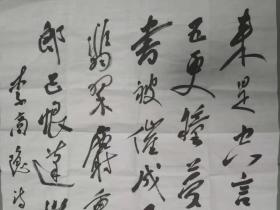 来是空言
五更鐘夢
書被催成
翡翠麝
郎已恨蓬
李商隐诗